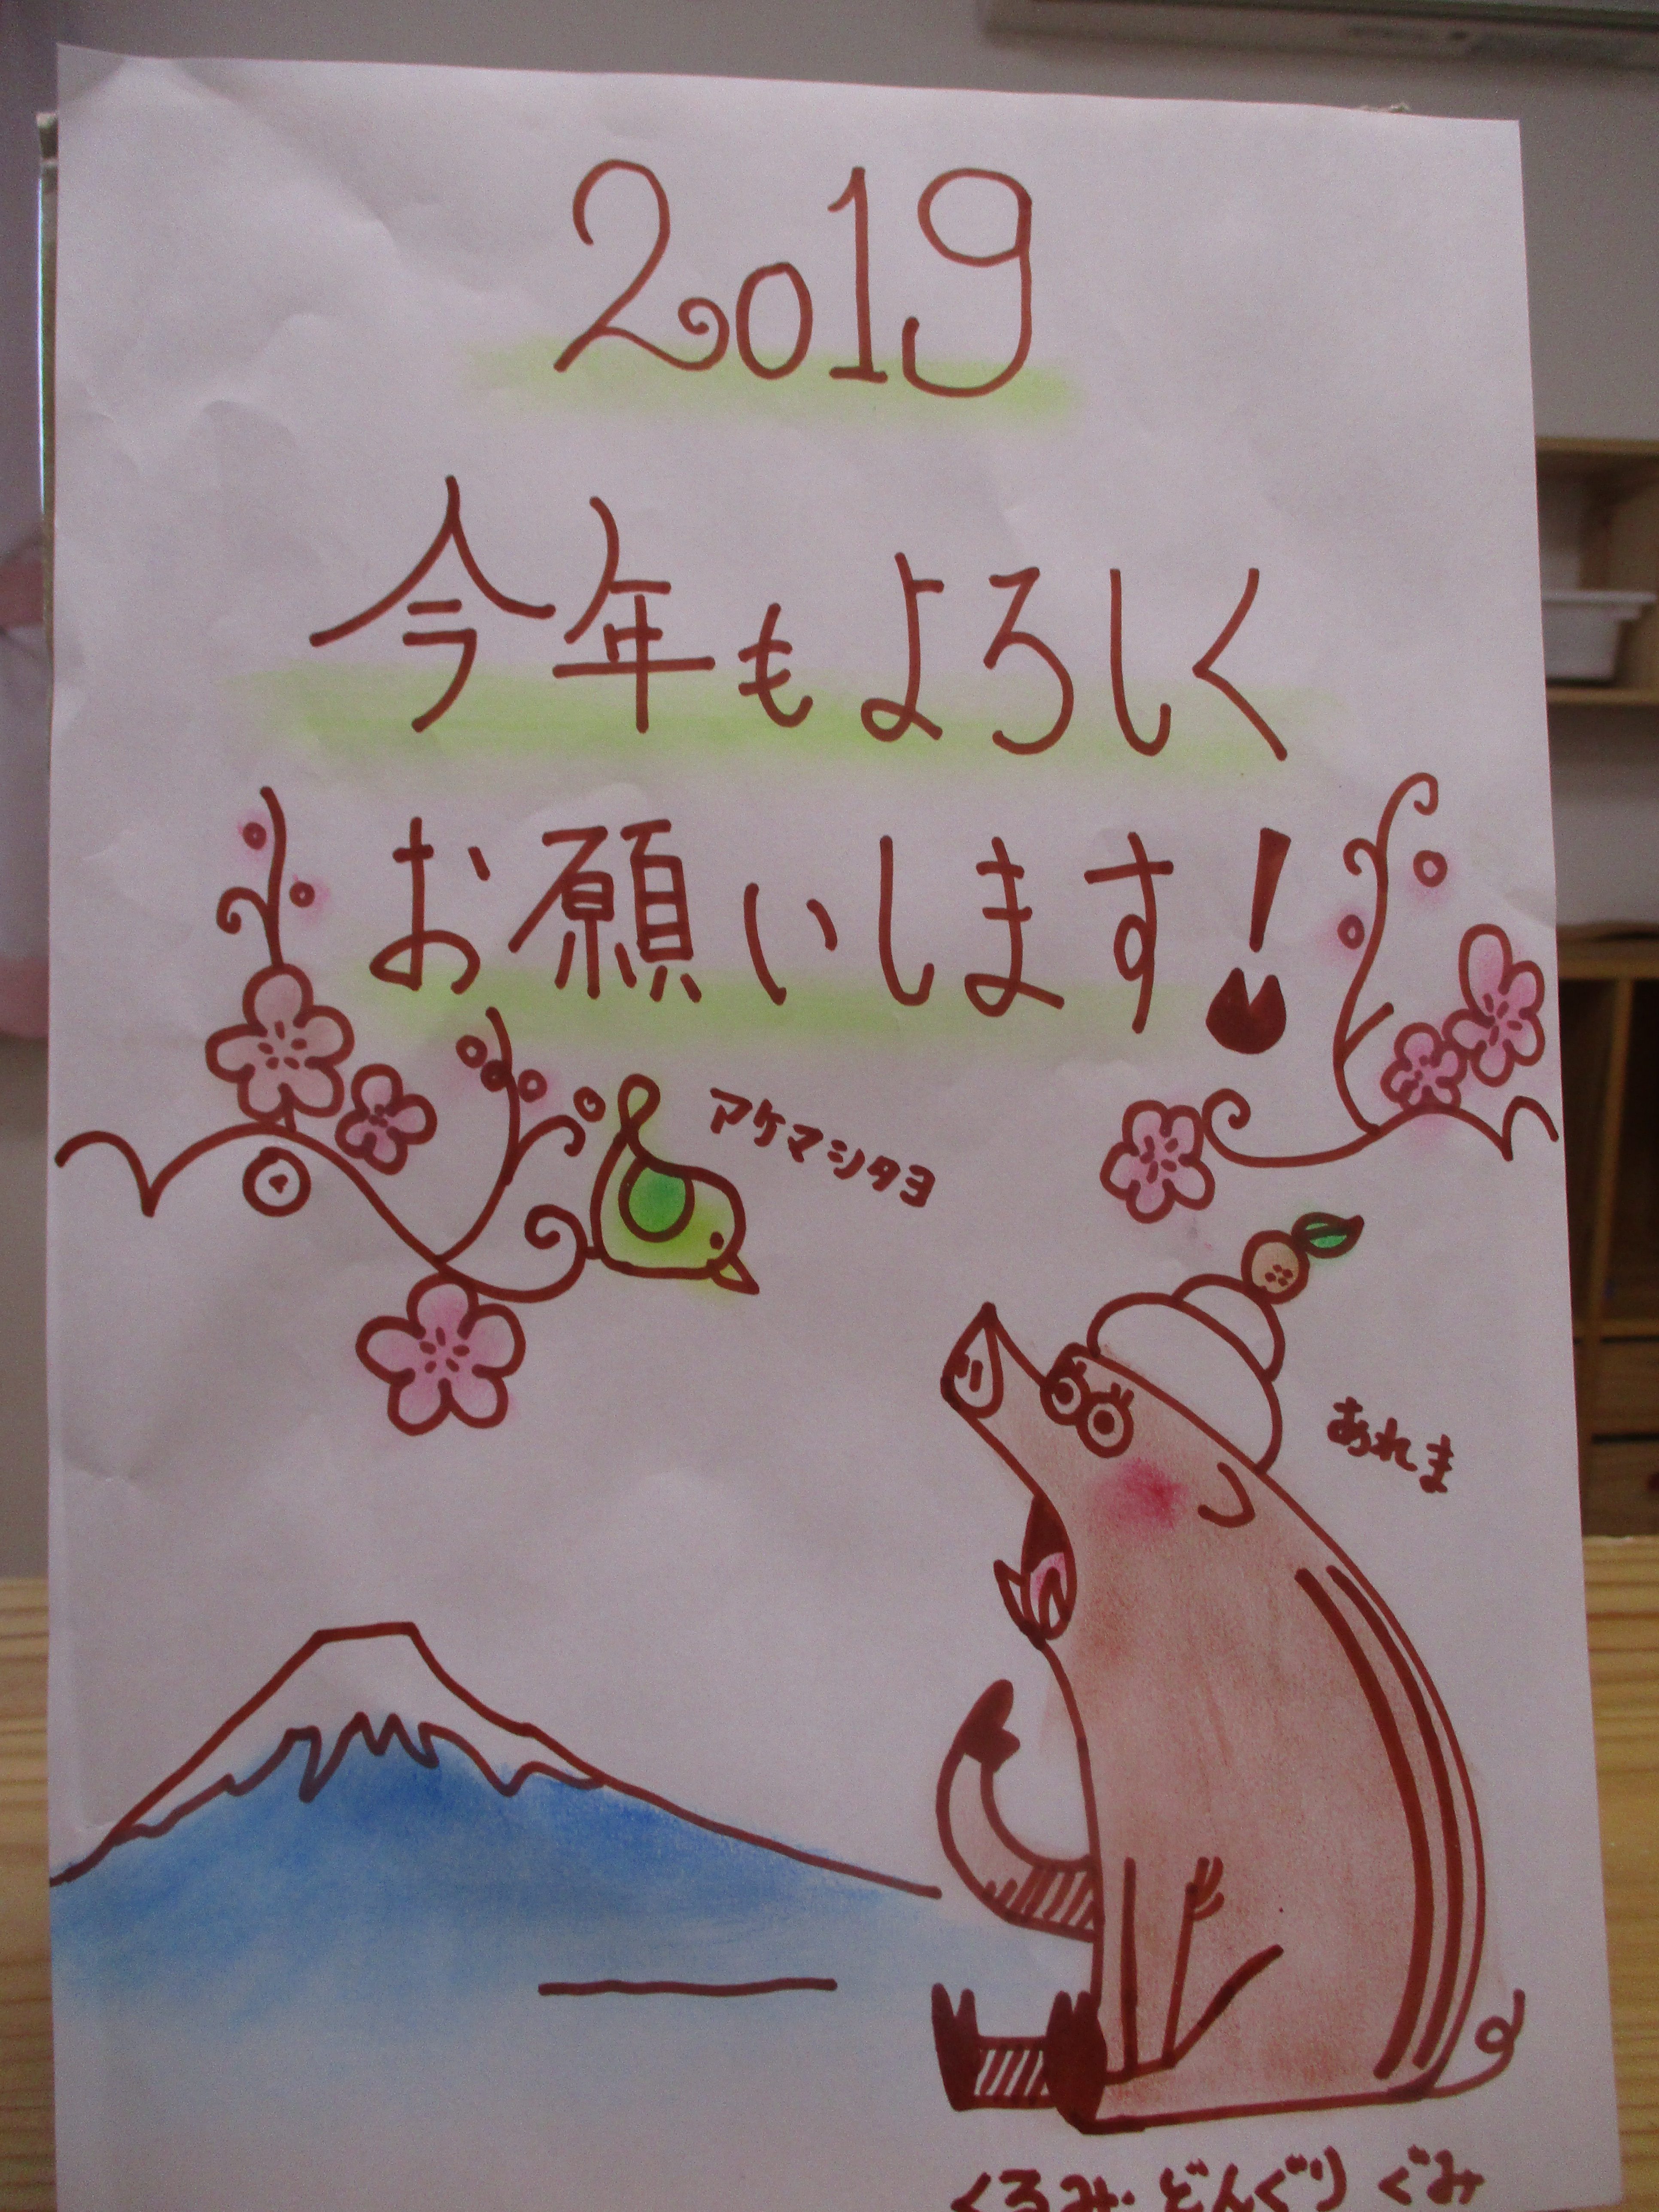 2019
今年もよろしく
お願いします!
アケマシタヨ
あれま
くるみ・どんぐりぐみ